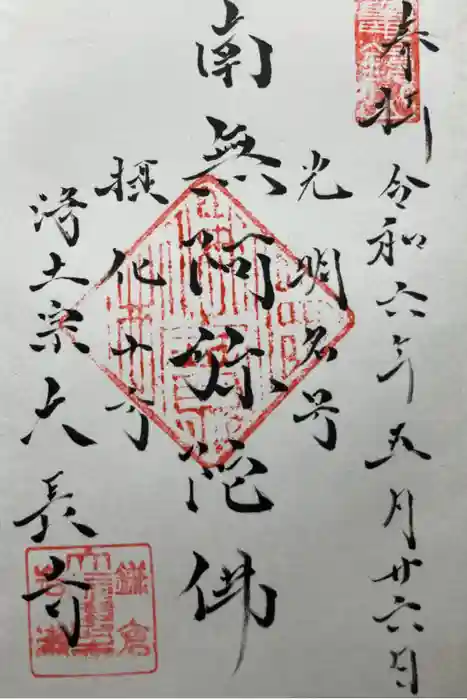 奉拝
令和六年五月廿六日
光明名号
南無阿弥陀佛
摂化十方
浄土宗大長寺
鎌倉